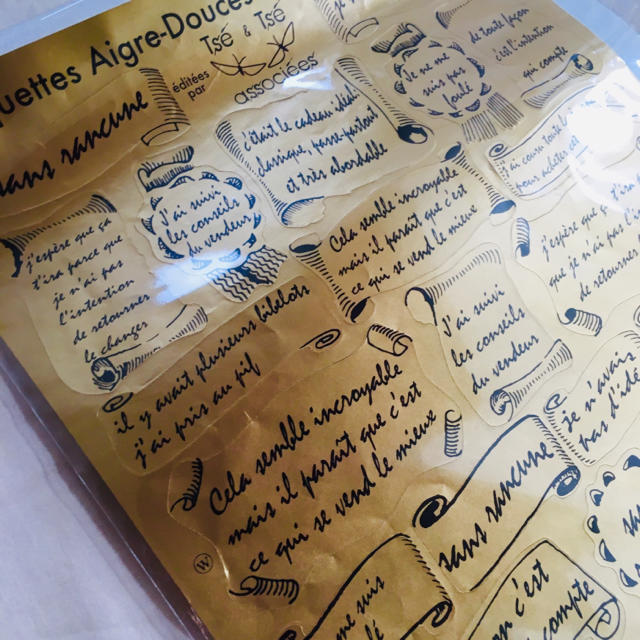 uettes Aigre-Douces
Tsé & Tsé
éditées
par
associées
sans rancune
J'étais le cadeau idéal
classique, passe-partout
et très abordable
Je ne me
suis pas
foulé
de toute façon
c'est l'intention
qui compte
J'ai suivi
les conseils
du vendeur
Cela semble incroyable
mais il parait que c'est
ce qui se vend le mieux
j'espère que ça
t'ira parce que
je n'ai pas
l'intention
de retourner
le changer
j'espère que
que je n'ai pas l'
de retourner
J'ai suivi
les conseils
du vendeur
il y avait plusieurs bibelots
j'ai pris au pif
Cela semble incroyable
mais il parait que c'est
ce qui se vend le mieux
je n'avais
pas d'idé
sans rancune
sans
W
me suis
c'est
compte